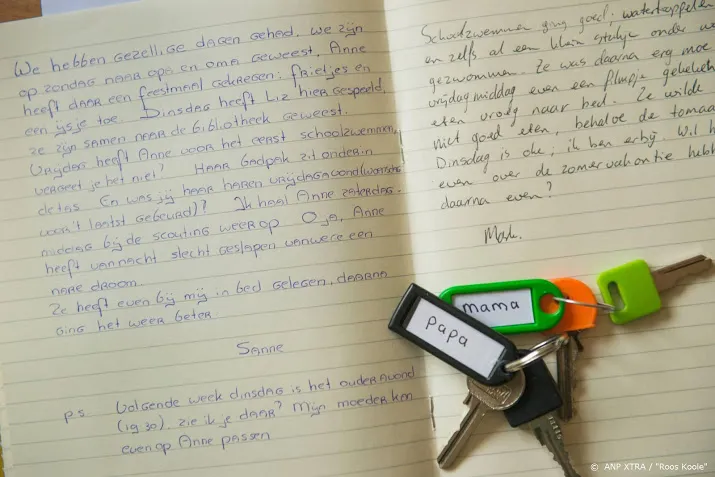 We hebben gezellige dagen gehad. We zijn
op zondag naar opa en oma geweest, Anne
heeft daar een feestmaal gekregen: frietjes en
een ijsje toe. Dinsdag heeft Liz hier gespeeld,
ze zijn samen naar de bibliotheek geweest.
Vrijdag heeft Anne voor het eerst schoolzwemmen,
vergeet je het niet? Haar badpak zit onderin
de tas. En was jij haar haren vrijdagavond (wat is
voor 't laatst gebeurd)? Ik haal Anne zaterdag-
middag bij de scouting weer op. O ja, Anne
heeft vannacht slecht geslapen vanwege een
nare droom.
Ze heeft even bij mij in bed gelegen, daarna
ging het weer beter.
Sanne
p.s. Volgende week dinsdag is het ouderavond
(19.30), zie ik je daar? Mijn moeder kan
even op Anne passen
Schoolzwemmen ging goed; watertrappelen
en zelfs al een klein stukje onder wa
gezwommen. Ze was daarna erg moe
vrijdagmiddag even een filmpje gekeken
eten vroeg naar bed. Ze wilde
niet goed eten, behalve de tomaa
Dinsdag is oké; ik ben erbij. Wil h
even over de zomervakantie hebb
daarna even?
Mark.
mama
papa
© ANP XTRA / "Roos Koole"